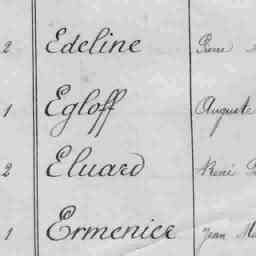 2 Edeline Pierre
1 Egloff Auguste
2 Eluard René
1 Ermenier Jean